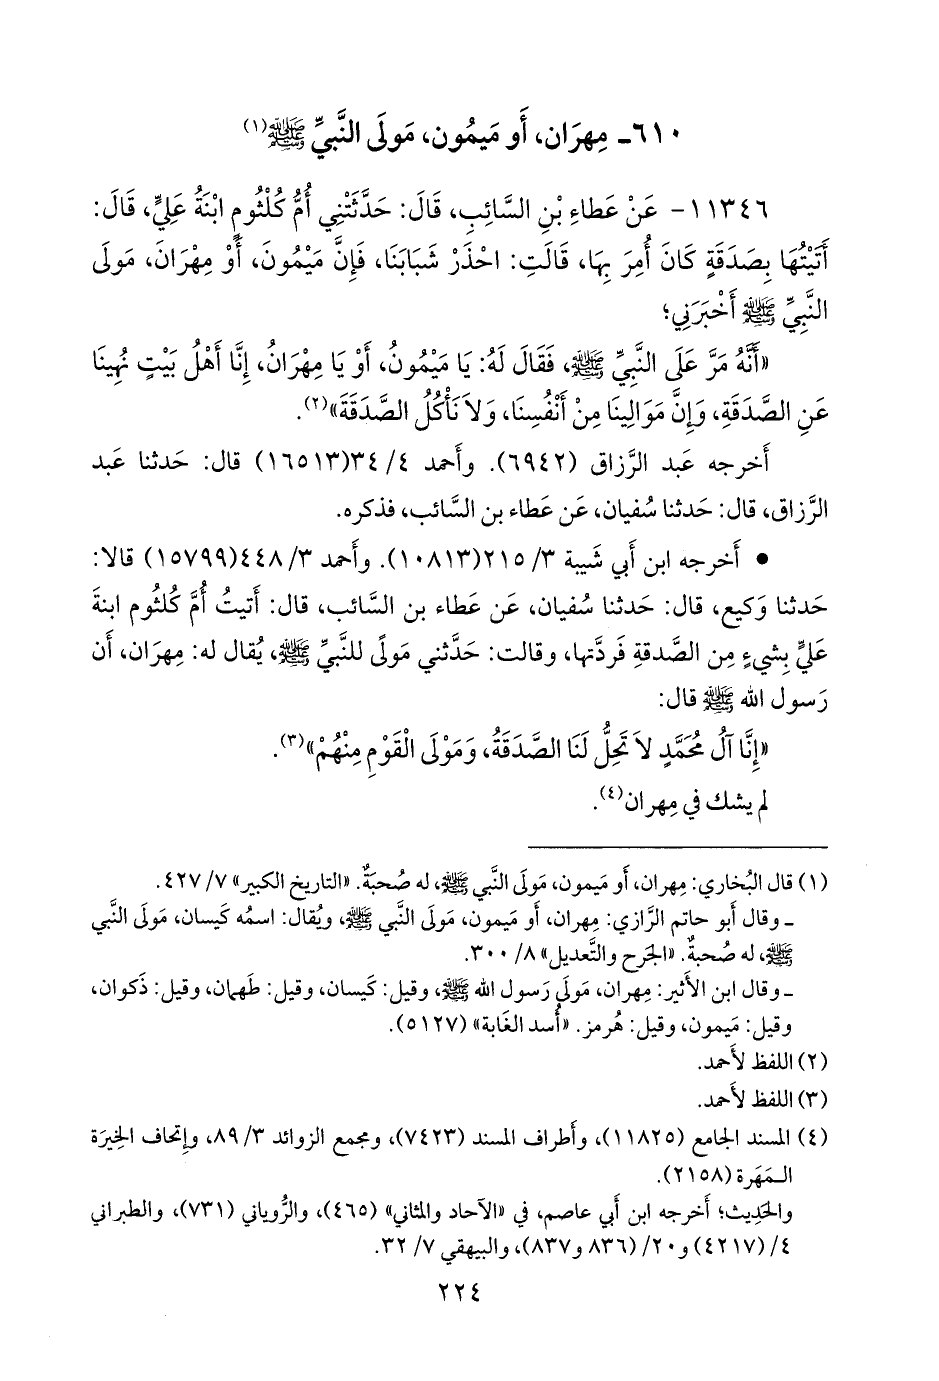 ٦١٠ـ مِهرَان، أَو مَيمُون، مَولَى النَّبيِّ ﷺ(١)
١١٣٤٦- عَنْ عَطاءِ بْنِ السَّائِبِ، قَالَ: حَدَّثَتْنِي أُمُّ كُلْثُومٍ ابْنَةُ عَلِيٍّ، قَالَ:
أَتَيْتُهَا بِصَدَقَةٍ كَانَ أُمِرَ بِهَا، قَالَتِ: احْذَرْ شَبَابَنَا، فَإِنَّ مَيْمُونَ، أَوْ مِهْرَانَ، مَوْلَى
النَّبِيِّ ﷺ أَخْبَرَنِي؛
«أَنَّهُ مَرَّ عَلَى النَّبِيِّ ﷺ، فَقَالَ لَهُ: يَا مَيْمُونُ، أَوْ يَا مِهْرَانُ، إِنَّا أَهْلُ بَيْتٍ نُهِينَا
عَنِ الصَّدَقَةِ، وَإِنَّ مَوَالِينَا مِنْ أَنْفُسِنَا، وَلاَ نَأْكُلُ الصَّدَقَةَ»(٢).
أَخرجه عَبد الرَّزاق (٦٩٤٢). وأَحمد ٤/ ٣٤(١٦٥١٣) قال: حَدثنا عَبد
الرَّزاق، قال: حَدثنا سُفيان، عَن عَطاء بن السَّائب، فذكره.
• أَخرجه ابن أَبي شَيبة ٣/ ٢١٥(١٠٨١٣). وأَحمد ٣/ ٤٤٨(١٥٧٩٩) قالا:
حَدثنا وَكيع، قال: حَدثنا سُفيان، عَن عَطاء بن السَّائب، قال: أَتيتُ أُمَّ كُلثُوم ابنةَ
عَليٍّ بِشيءٍ مِن الصَّدقةِ فَردَّتها، وقالت: حَدَّثني مَولًى للنَّبيِّ ﷺ، يُقال له: مِهرَان، أَن
رَسول الله ﷺ قال:
«إِنَّا آلُ مُحَمَّدٍ لاَ تَحِلُّ لَنَا الصَّدَقَةُ، وَمَوْلَى الْقَوْمِ مِنْهُمْ»(٣).
لم يشك في مِهران(٤).
(١) قال البُخاري: مِهران، أَو مَيمون، مَولَى النَّبي ﷺ، له صُحبَةٌ. «التاريخ الكبير» ٧/ ٤٢٧.
ـ وقال أَبو حاتم الرَّازي: مِهران، أَو مَيمون، مَولَى النَّبي ﷺ، ويُقال: اسمُه كَيسان، مَولَى النَّبي
ﷺ، له صُحبةٌ. «الجَرح والتَّعديل» ٨/ ٣٠٠.
ـ وقال ابن الأَثير: مِهران، مَولَى رَسول الله ﷺ، وقيل: كَيسان، وقيل: طَهمان، وقيل: ذَكوان،
وقيل: مَيمون، وقيل: هُرمز. «أُسد الغابة» (٥١٢٧).
(٢) اللفظ لأَحمد.
(٣) اللفظ لأَحمد.
(٤) المسند الجامع (١١٨٢٥)، وأَطراف المسند (٧٤٢٣)، ومجمع الزوائد ٣/ ٨٩، وإِتحاف الخِيرَة
الـمَهَرة (٢١٥٨).
والحَدِيث؛ أَخرجه ابن أَبي عاصم، في «الآحاد والمثاني» (٤٦٥)، والرُّوياني (٧٣١)، والطبراني
٤/ (٤٢١٧) و٢٠/ (٨٣٦ و٨٣٧)، والبيهقي ٧/ ٣٢.
٢٢٤